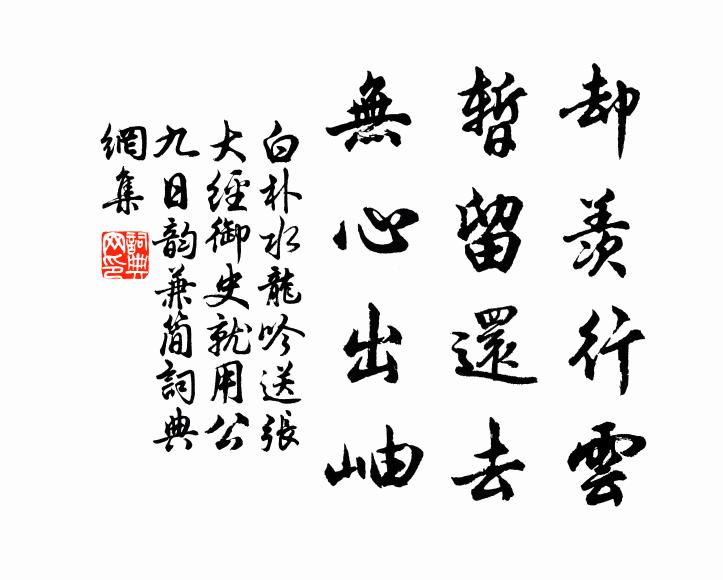 却羨行雲
暫留還去
無心出岫
白朴水龍吟送張
大經御史就用公
九日韵兼简詞典
網集
詞典網印